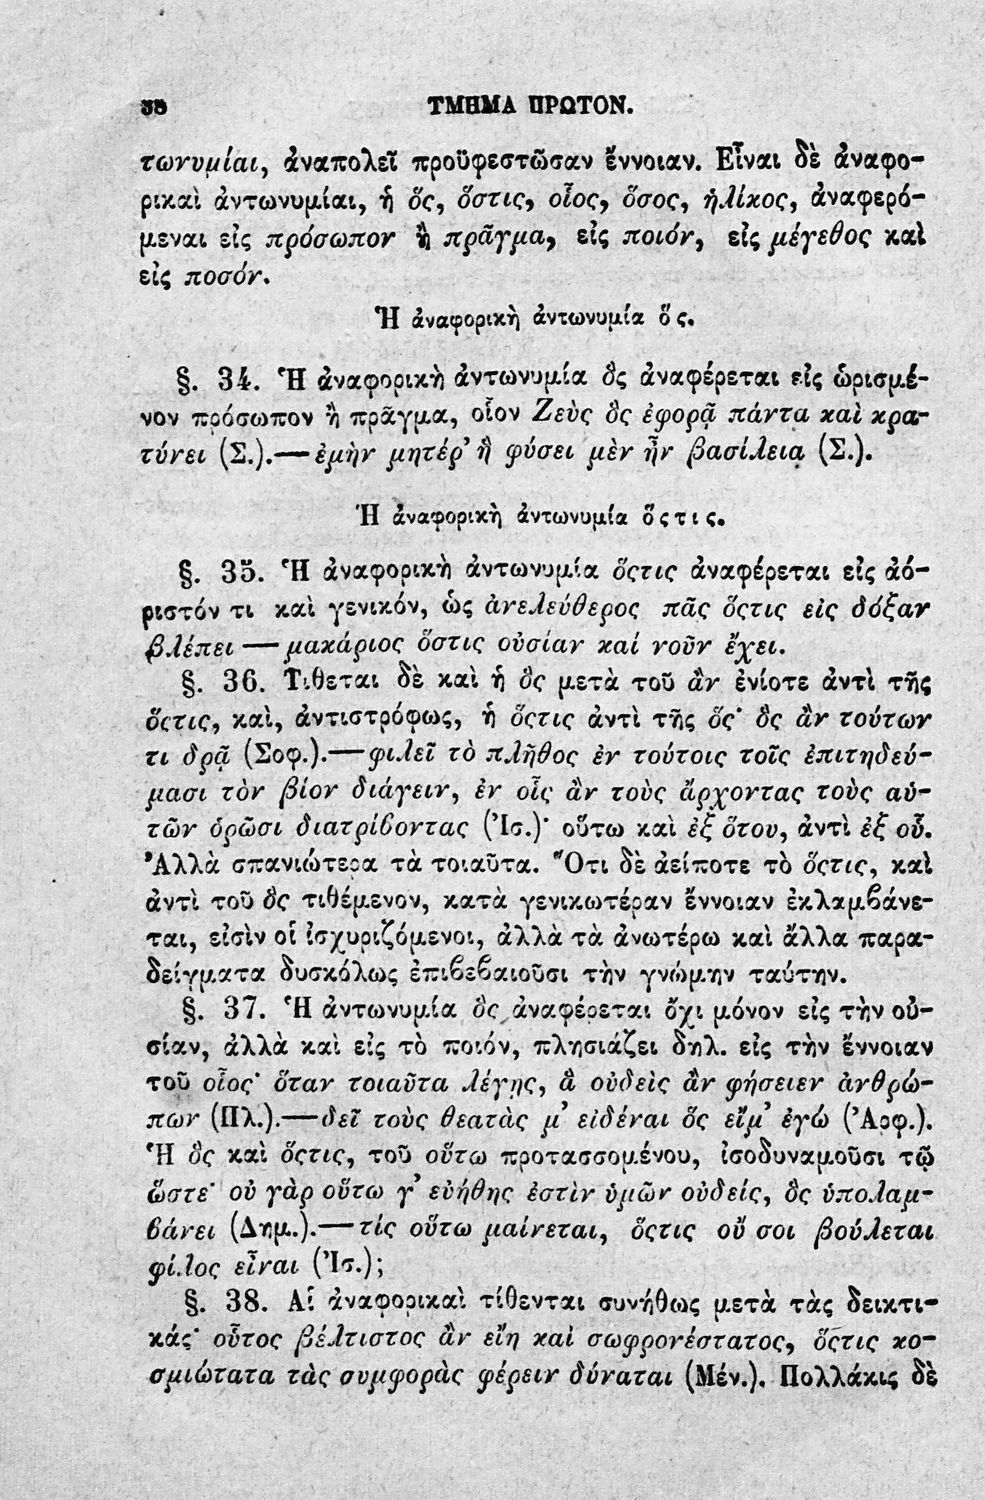 38 ΤΜΗΜΑ ΠΡΩΤΟΝ.
τωνυμίαι, ἀναπολεῖ προϋφεστῶσαν ἔννοιαν. Εἶναι δὲ ἀναφο-
ρικαὶ ἀντωνυμίαι, ἡ ὅς, ὅστις, οἷος, ὅσος, ἡλίκος, ἀναφερό-
μεναι εἰς πρόσωπον ἢ πρᾶγμα, εἰς ποιόν, εἰς μέγεθος καὶ
εἰς ποσόν.
Ἡ ἀναφορικὴ ἀντωνυμία ὅς.
§. 34. Ἡ ἀναφορικὴ ἀντωνυμία ὃς ἀναφέρεται εἰς ὡρισμέ-
νον πρόσωπον ἢ πρᾶγμα, οἷον Ζεὺς ὃς ἐφορᾷ πάντα καὶ κρα-
τύνει (Σ.).—ἐμὴν μητέρ' ἣ φύσει μὲν ἦν βασίλεια (Σ.).
Ἡ ἀναφορικὴ ἀντωνυμία ὅςτις.
§. 35. Ἡ ἀναφορικὴ ἀντωνυμία ὅςτις ἀναφέρεται εἰς ἀό-
ριστόν τι καὶ γενικόν, ὡς ἀνελεύθερος πᾶς ὅςτις εἰς δόξαν
βλέπει — μακάριος ὅστις οὐσίαν καί νοῦν ἔχει.
§. 36. Τίθεται δὲ καὶ ἡ ὃς μετὰ τοῦ ἂν ἐνίοτε ἀντὶ τῆς
ὅςτις, καὶ, ἀντιστρόφως, ἡ ὅςτις ἀντὶ τῆς ὅς· ὃς ἂν τούτων
τι δρᾷ (Σοφ.).—φιλεῖ τὸ πλῆθος ἐν τούτοις τοῖς ἐπιτηδεύ-
μασι τὸν βίον διάγειν, ἐν οἷς ἂν τοὺς ἄρχοντας τοὺς αὑ-
τῶν ὁρῶσι διατρίβοντας (Ἰσ.)· οὕτω καὶ ἐξ ὅτου, ἀντὶ ἐξ οὗ.
Ἀλλὰ σπανιώτερα τὰ τοιαῦτα. Ὅτι δὲ ἀείποτε τὸ ὅςτις, καὶ
ἀντὶ τοῦ ὃς τιθέμενον, κατὰ γενικωτέραν ἔννοιαν ἐκλαμβάνε-
ται, εἰσὶν οἱ ἰσχυριζόμενοι, ἀλλὰ τὰ ἀνωτέρω καὶ ἄλλα παρα-
δείγματα δυσκόλως ἐπιβεβαιοῦσι τὴν γνώμην ταύτην.
§. 37. Ἡ ἀντωνυμία ὃς ἀναφέρεται ὄχι μόνον εἰς τὴν οὐ-
σίαν, ἀλλὰ καὶ εἰς τὸ ποιόν, πλησιάζει δηλ. εἰς τὴν ἔννοιαν
τοῦ οἷος· ὅταν τοιαῦτα λέγῃς, ἃ οὐδεὶς ἂν φήσειεν ἀνθρώ-
πων (Πλ.).—δεῖ τοὺς θεατὰς μ' εἰδέναι ὅς εἴμ' ἐγώ (Ἀρφ.).
Ἡ ὃς καὶ ὅςτις, τοῦ οὕτω προτασσομένου, ἰσοδυναμοῦσι τῷ
ὥστε· οὐ γὰρ οὕτω γ' εὐήθης ἐστὶν ὑμῶν οὐδείς, ὃς ὑπολαμ-
βάνει (Δημ.).—τίς οὕτω μαίνεται, ὅςτις οὔ σοι βούλεται
φίλος εἶναι (Ἰσ.);
§. 38. Αἱ ἀναφορικαὶ τίθενται συνήθως μετὰ τὰς δεικτι-
κάς· οὗτος βέλτιστος ἂν εἴη καὶ σωφρονέστατος, ὅςτις κο-
σμιώτατα τὰς συμφορὰς φέρειν δύναται (Μέν.). Πολλάκις δὲ